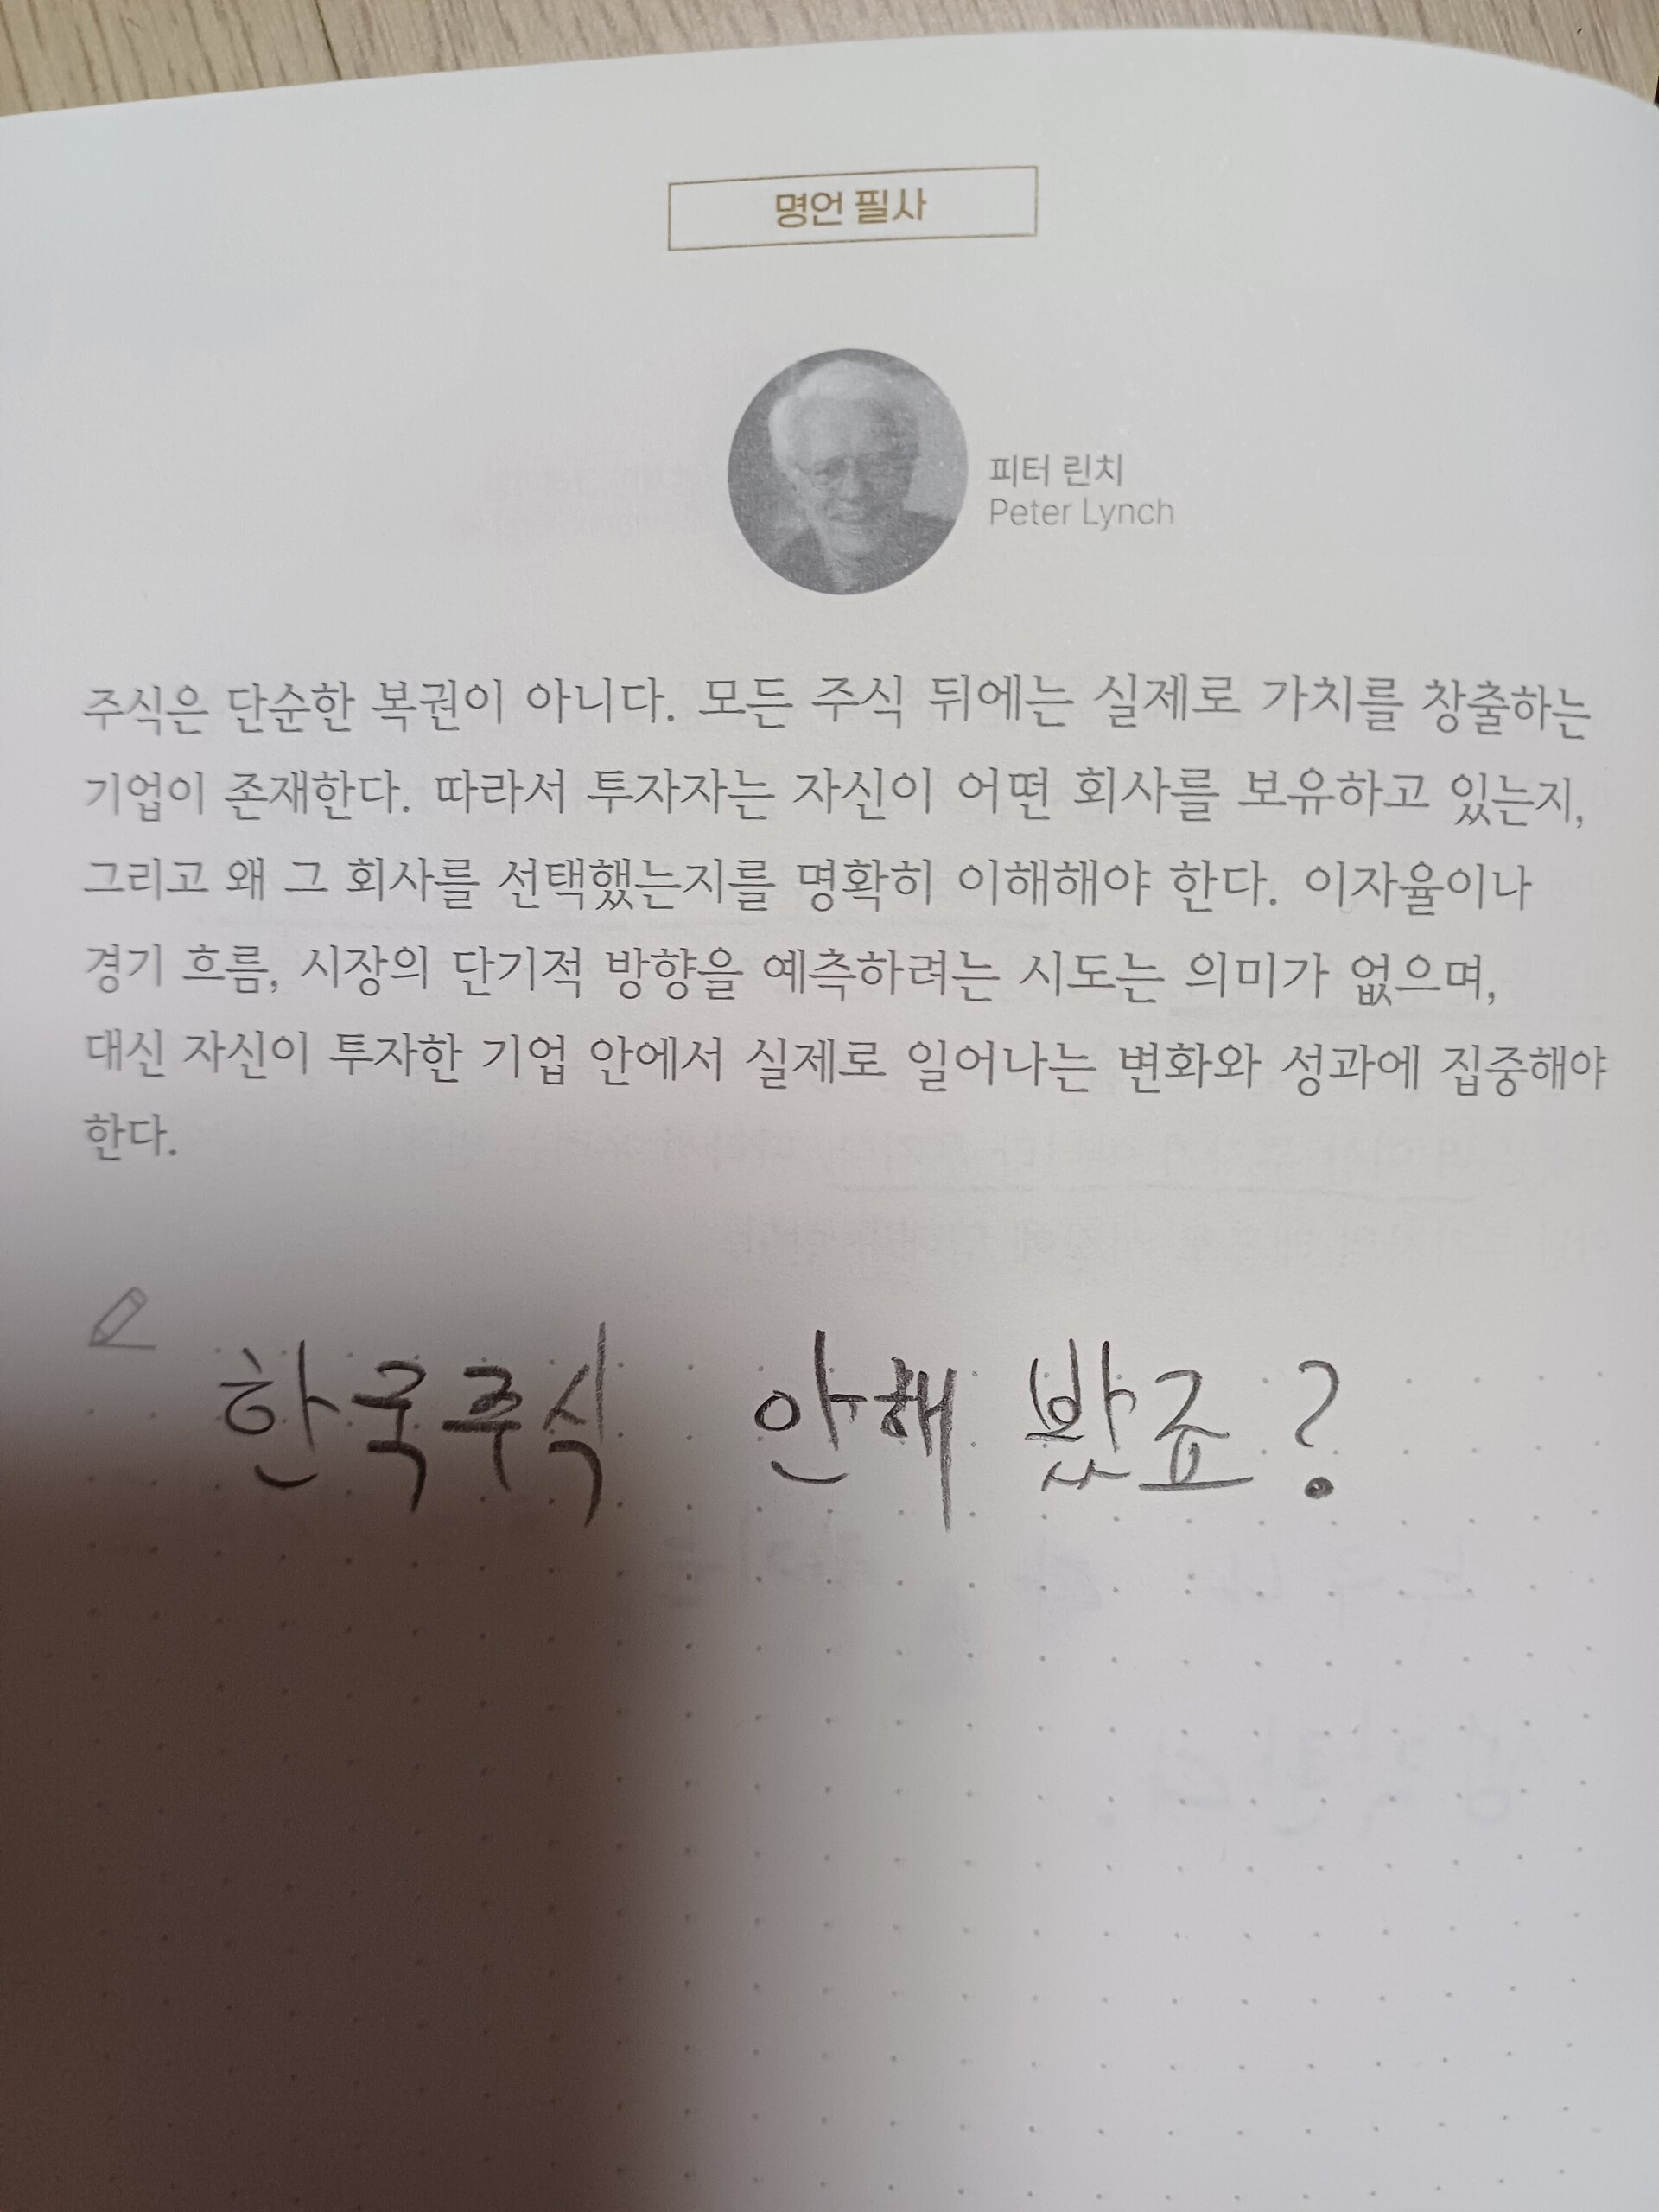 명언 필사
피터 린치
Peter Lynch
주식은 단순한 복권이 아니다. 모든 주식 뒤에는 실제로 가치를 창출하는
기업이 존재한다. 따라서 투자자는 자신이 어떤 회사를 보유하고 있는지,
그리고 왜 그 회사를 선택했는지를 명확히 이해해야 한다. 이자율이나
경기 흐름, 시장의 단기적 방향을 예측하려는 시도는 의미가 없으며,
대신 자신이 투자한 기업 안에서 실제로 일어나는 변화와 성과에 집중해야
한다.
한국주식 안해 봤죠?